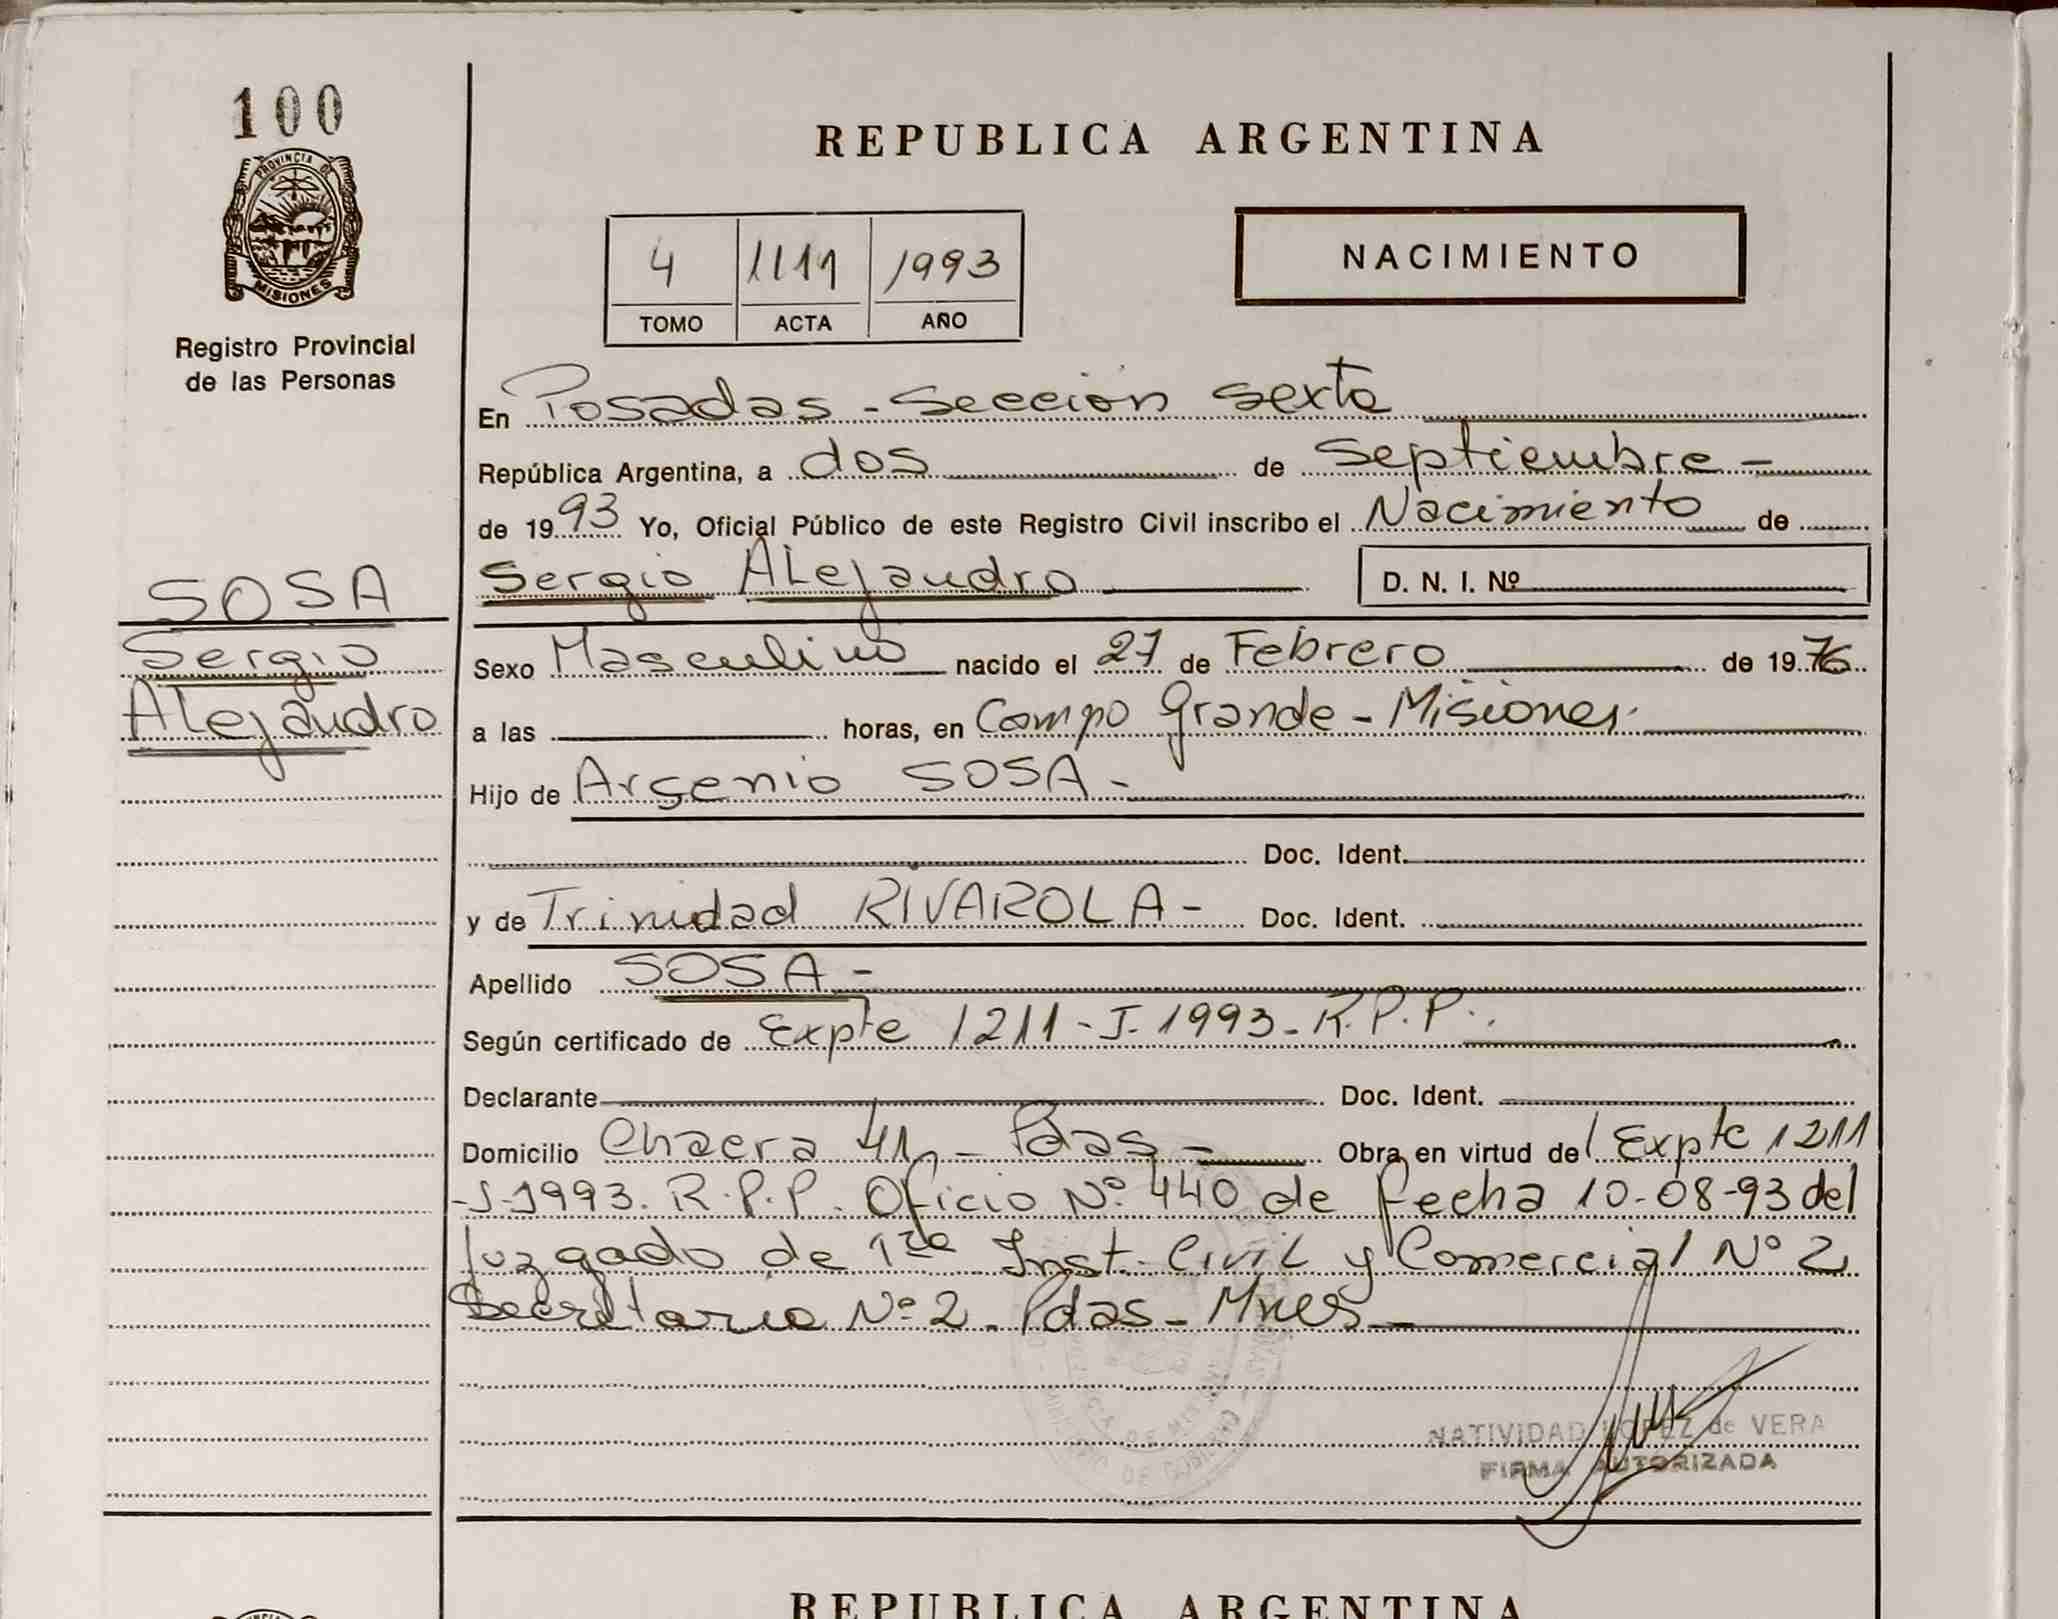 100
PROVINCIA DE
MISIONES
Registro Provincial
de las Personas
REPUBLICA ARGENTINA
4 1111 1993
TOMO ACTA AÑO
NACIMIENTO
En Posadas - Sección sexta
República Argentina, a dos de Septiembre -
de 1993 Yo, Oficial Público de este Registro Civil inscribo el Nacimiento de
Sergio Alejandro D. N. I. Nº
SOSA
Sergio
Alejandro
Sexo Masculino nacido el 27 de Febrero de 1976
a las horas, en Campo Grande - Misiones.
Hijo de Arsenio SOSA -
Doc. Ident.
y de Trinidad RIVAROLA - Doc. Ident.
Apellido SOSA -
Según certificado de Expte 1211 - J - 1993 - R.P.P.
Declarante Doc. Ident.
Domicilio Chacra 41 - Pdas - Obra en virtud del Expte 1211
- J - 1993. R.P.P. Oficio Nº 440 de fecha 10-08-93 del
Juzgado de 1ra Inst. Civil y Comercial Nº 2
Secretaria Nº 2 - Pdas - Mnes -
NATIVIDAD LOPEZ de VERA
FIRMA AUTORIZADA
REPUBLICA ARGENTINA